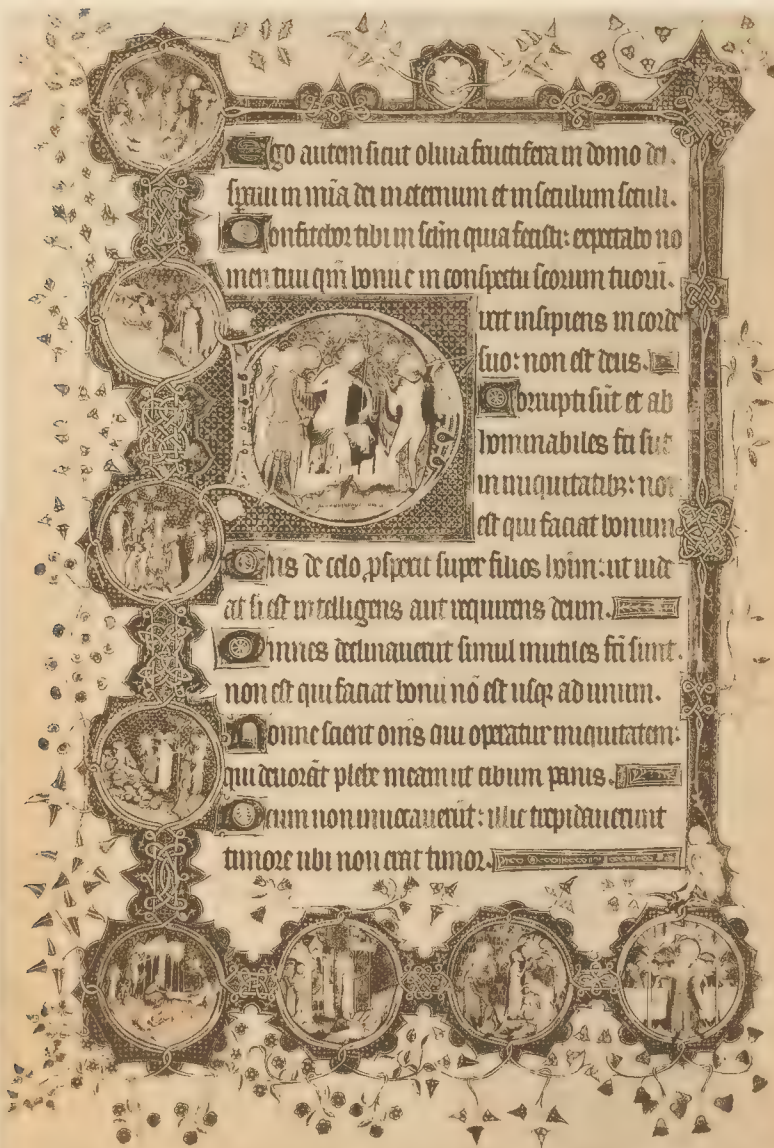 Ego autem sicut oliua fructifera in domo dei.
speraui in mia dei in eternum et in seculum seculi.
Confitebor tibi in sclm quia fecisti: expectabo no
men tuu qm bonu e in conspectu scorum tuoru.
ixit insipiens in corde
suo: non est deus.
Corrupti sut et ab
hominabiles fci sut
in iniquitatibz: non
est qui faciat bonum
Dns de celo pspexit super filios hoim: ut uide
at si est intelligens aut requirens deum.
Omnes declinauerut simul inutiles fci sunt.
non est qui faciat bonu no est usqz ad unum.
Nonne scient oms qui operatur iniquitatem:
qui deuorat plebe meam ut cibum panis.
Deum non inuocauerut: illic trepidauerunt
timore ubi non erat timor.